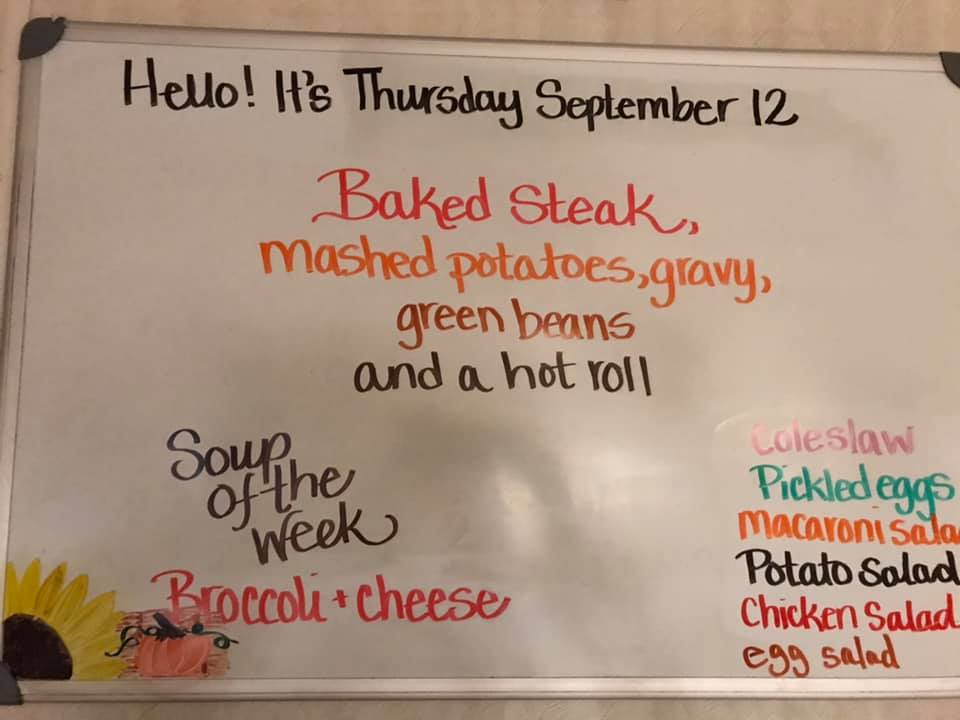 Hello! It's Thursday September 12
Baked Steak,
mashed potatoes, gravy,
green beans
and a hot roll
Soup
of the
Week
Broccoli + cheese
Coleslaw
Pickled eggs
Macaroni Sala
Potato Salad
Chicken Salad
egg salad